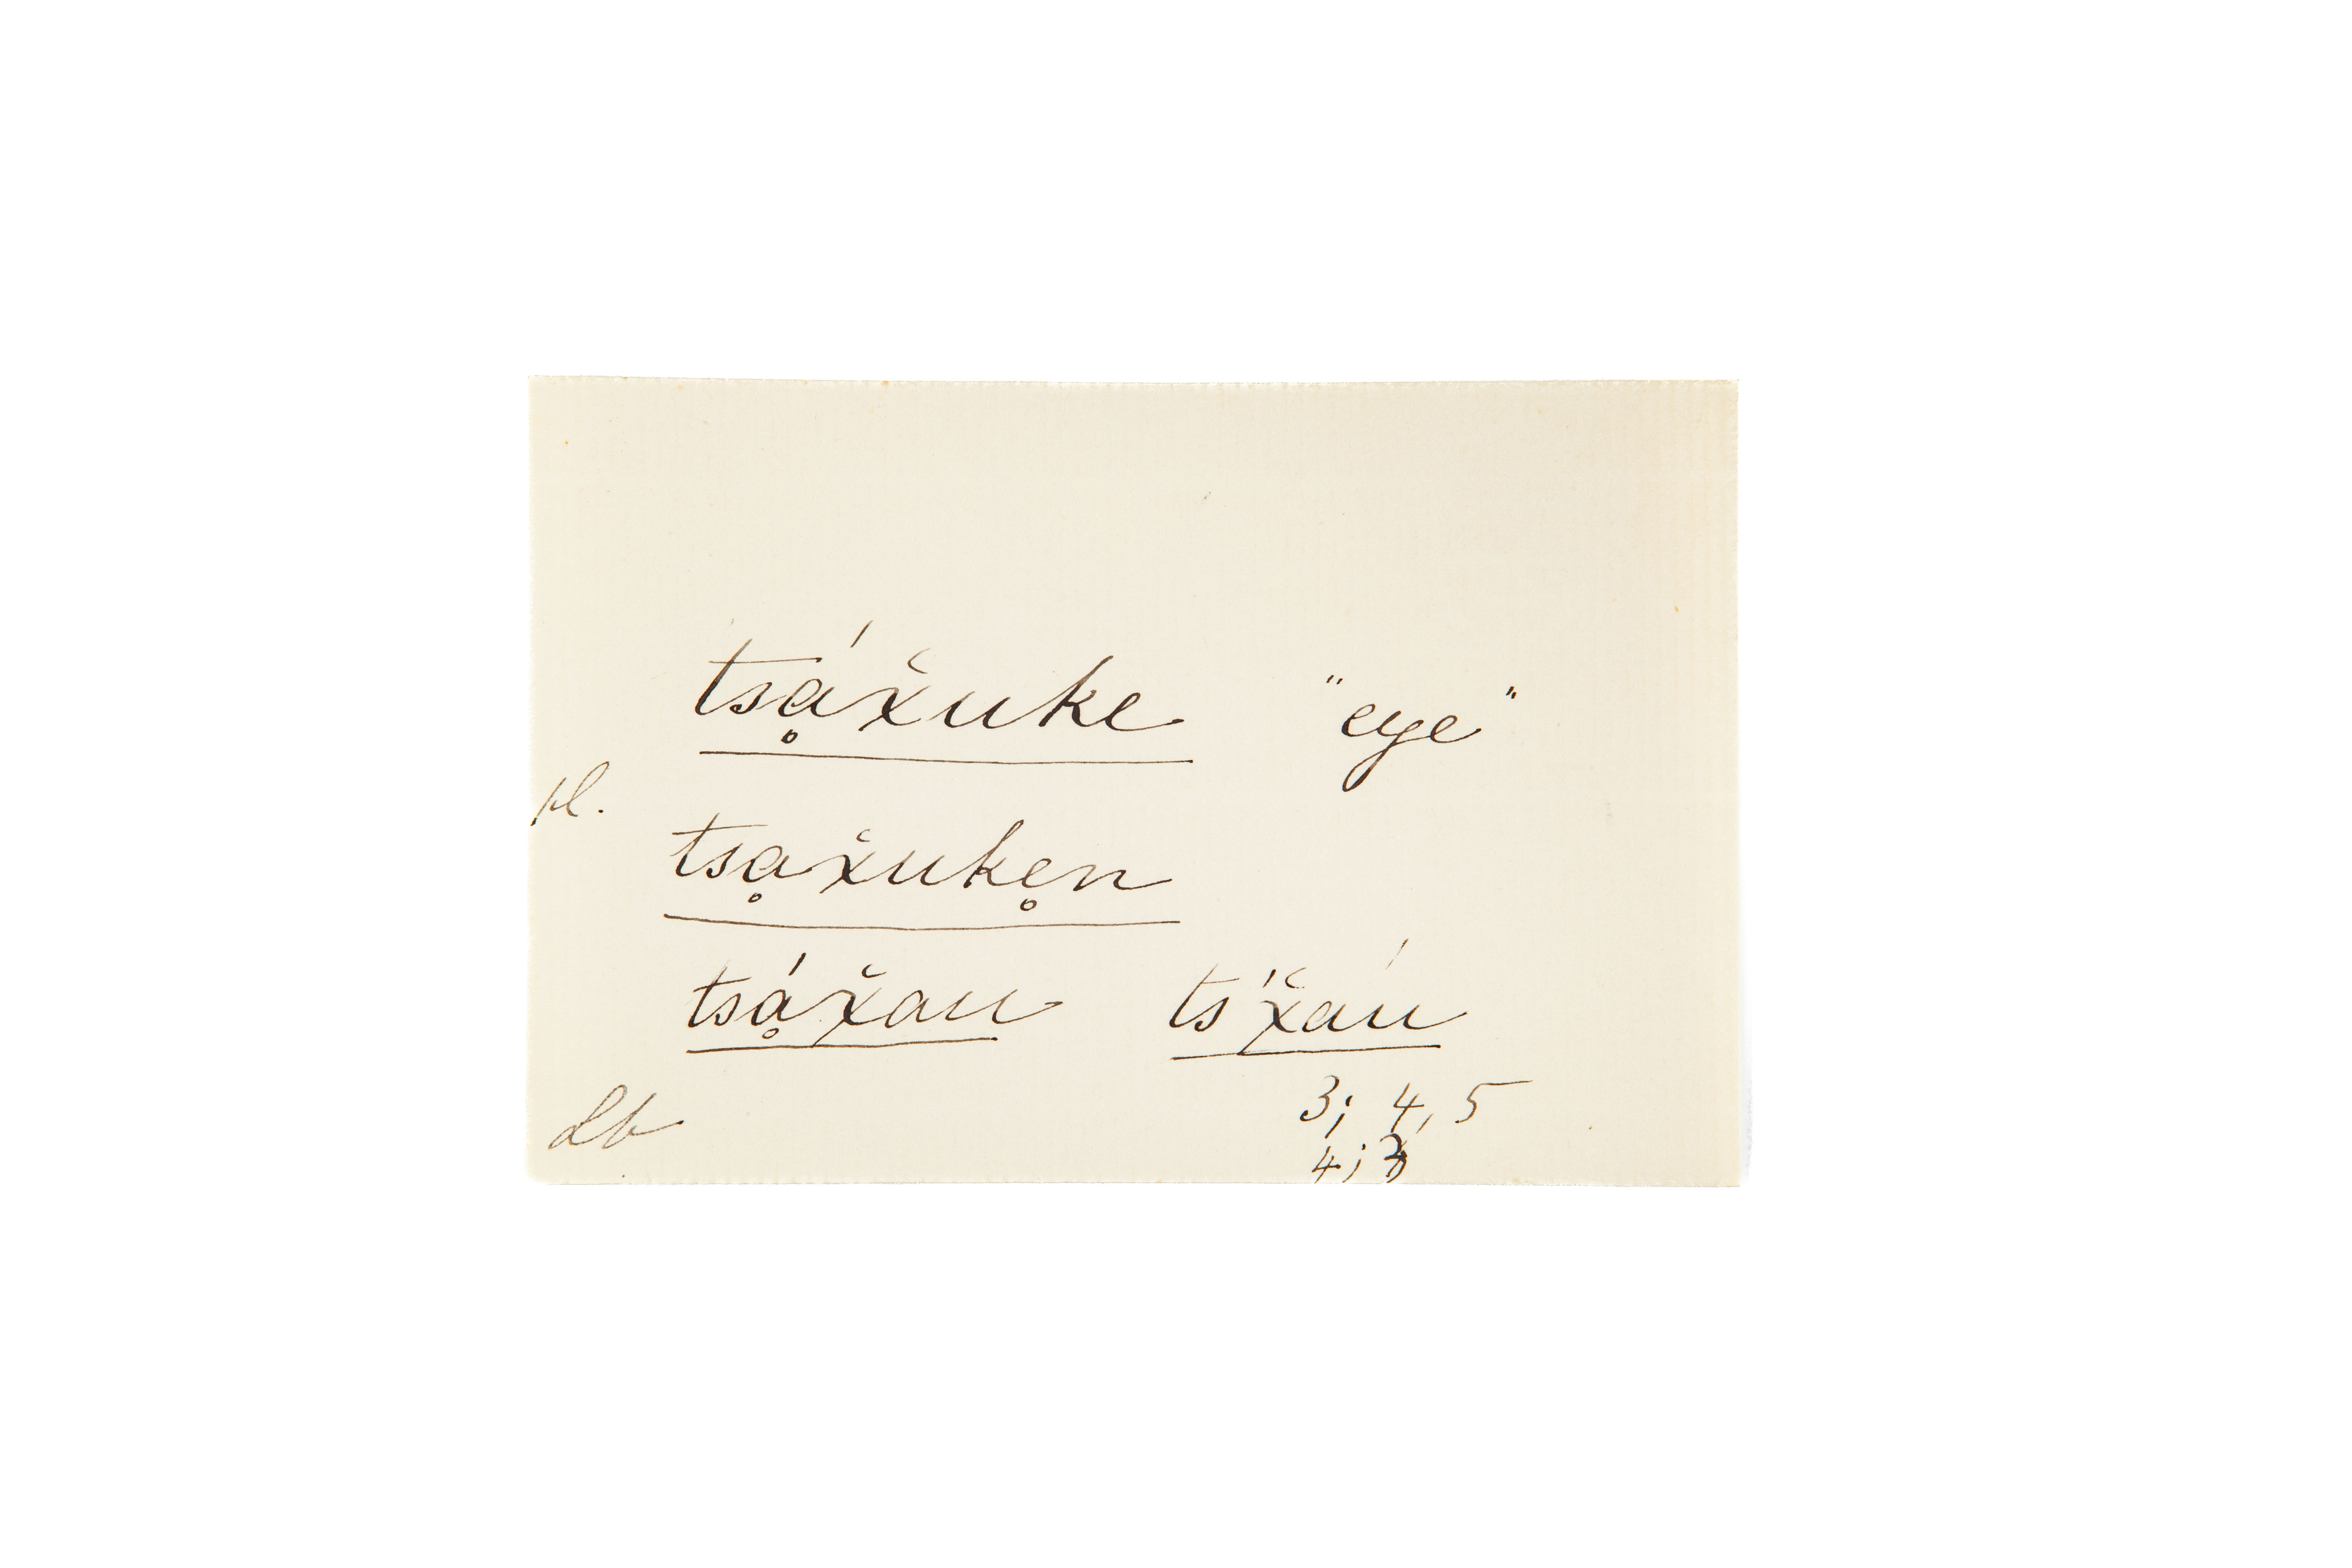 tsḁ́x̌uke "eye"
pl.
tsḁx̌uke̥n
tsḁ́x̌au ts'x̌áu
3; 4, 5
4;